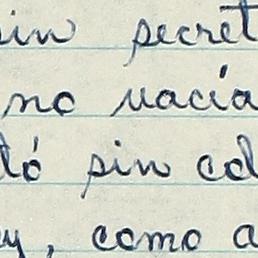 sin secret
no vacía
tó sin col
y, como a